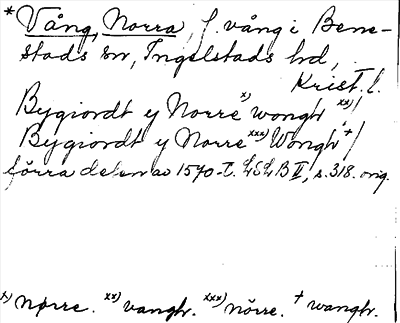 * Vång, Norra, f. vång i Bene-
stads sn, Ingelstads hd,
Krist. l.
Bygiordt y Norre x) wongh xx)/
Bygiordt y Norre xxx) Wongh +/
förra delen av 1570-t. LSLB II, s. 318. orig.
x) Nørre. xx) vangh. xxx) nörre. + wangh.